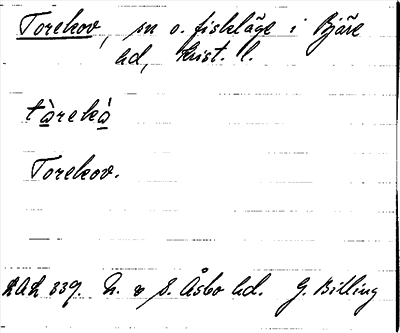 Torekov, sn o. fiskläge i Bjäre
hd, Krist. l.
tàrekà
Torekov.
LAL 339. N. o S. Åsbo hd. G. Billing